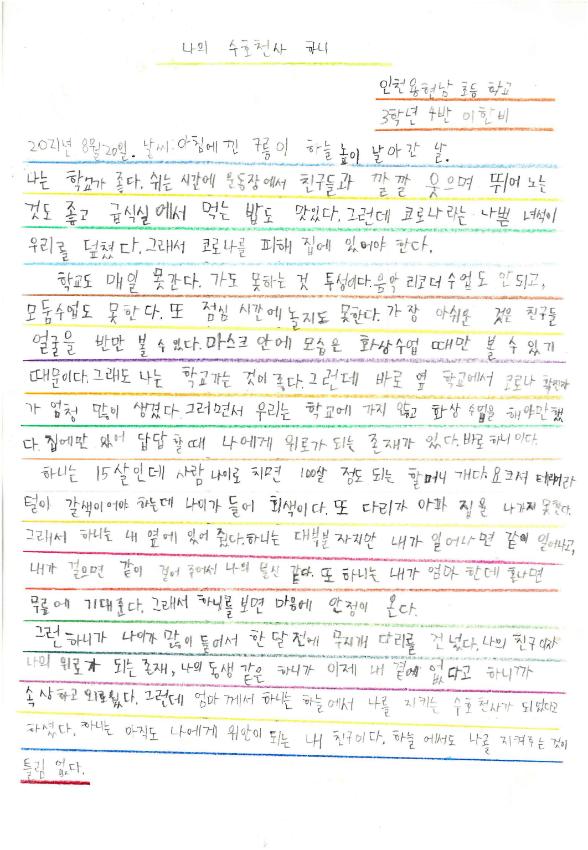 나의 수호천사 하니
인천용현남 초등 학교
3학년 4반 이한비
2021년 8월20일. 날씨:아침에 낀 구름이 하늘 높이 날아간 날.
나는 학교가 좋다. 쉬는 시간에 운동장에서 친구들과 깔깔 웃으며 뛰어 노는
것도 좋고 급식실에서 먹는 밥도 맛있다. 그런데 코로나라는 나쁜 녀석이
우리를 덮쳤다. 그래서 코로나를 피해 집에 있어야 한다.
학교도 매일 못간다. 가도 못하는 것 투성이다. 음악 리코더 수업도 안되고,
모둠수업도 못한다. 또 점심 시간에 놀지도 못한다. 가장 아쉬운 것은 친구들
얼굴을 반만 볼 수 있다. 마스크 안에 모습은 화상수업 때만 볼 수 있기
때문이다. 그래도 나는 학교가는 것이 좋다. 그런데 바로 옆 학교에서 코로나 확진자
가 엄청 많이 생겼다. 그러면서 우리는 학교에 가지 않고 화상 수업을 해야만 했
다. 집에만 있어 답답할 때 나에게 위로가 되는 존재가 있다. 바로 하니이다.
하니는 15살인데 사람 나이로 치면 100살 정도 되는 할머니 개다. 요크셔 테리어라
털이 갈색이어야 하는데 나이가 들어 회색이다. 또 다리가 아파 집을 나가지 못한다.
그래서 하니는 내 옆에 있어 줬다. 하니는 대부분 자지만 내가 일어나면 같이 일어나고,
내가 걸으면 같이 걸어 주어서 나의 분신 같다. 또 하니는 내가 엄마 한데 혼나면
무릎에 기대준다. 그래서 하니를 보면 마음에 안정이 온다.
그런 하니가 나이가 많이 들어서 한 달 전에 무지개 다리를 건넜다. 나의 친구이자
나의 위로가 되는 존재, 나의 동생 같은 하니가 이제 내 곁에 없다고 하니까
속상하고 외로웠다. 그런데 엄마께서 하니는 하늘에서 나를 지키는 수호천사가 되었다고
하셨다. 하니는 아직도 나에게 위안이 되는 내 친구이다. 하늘에서도 나를 지켜주는 것이
틀림 없다.